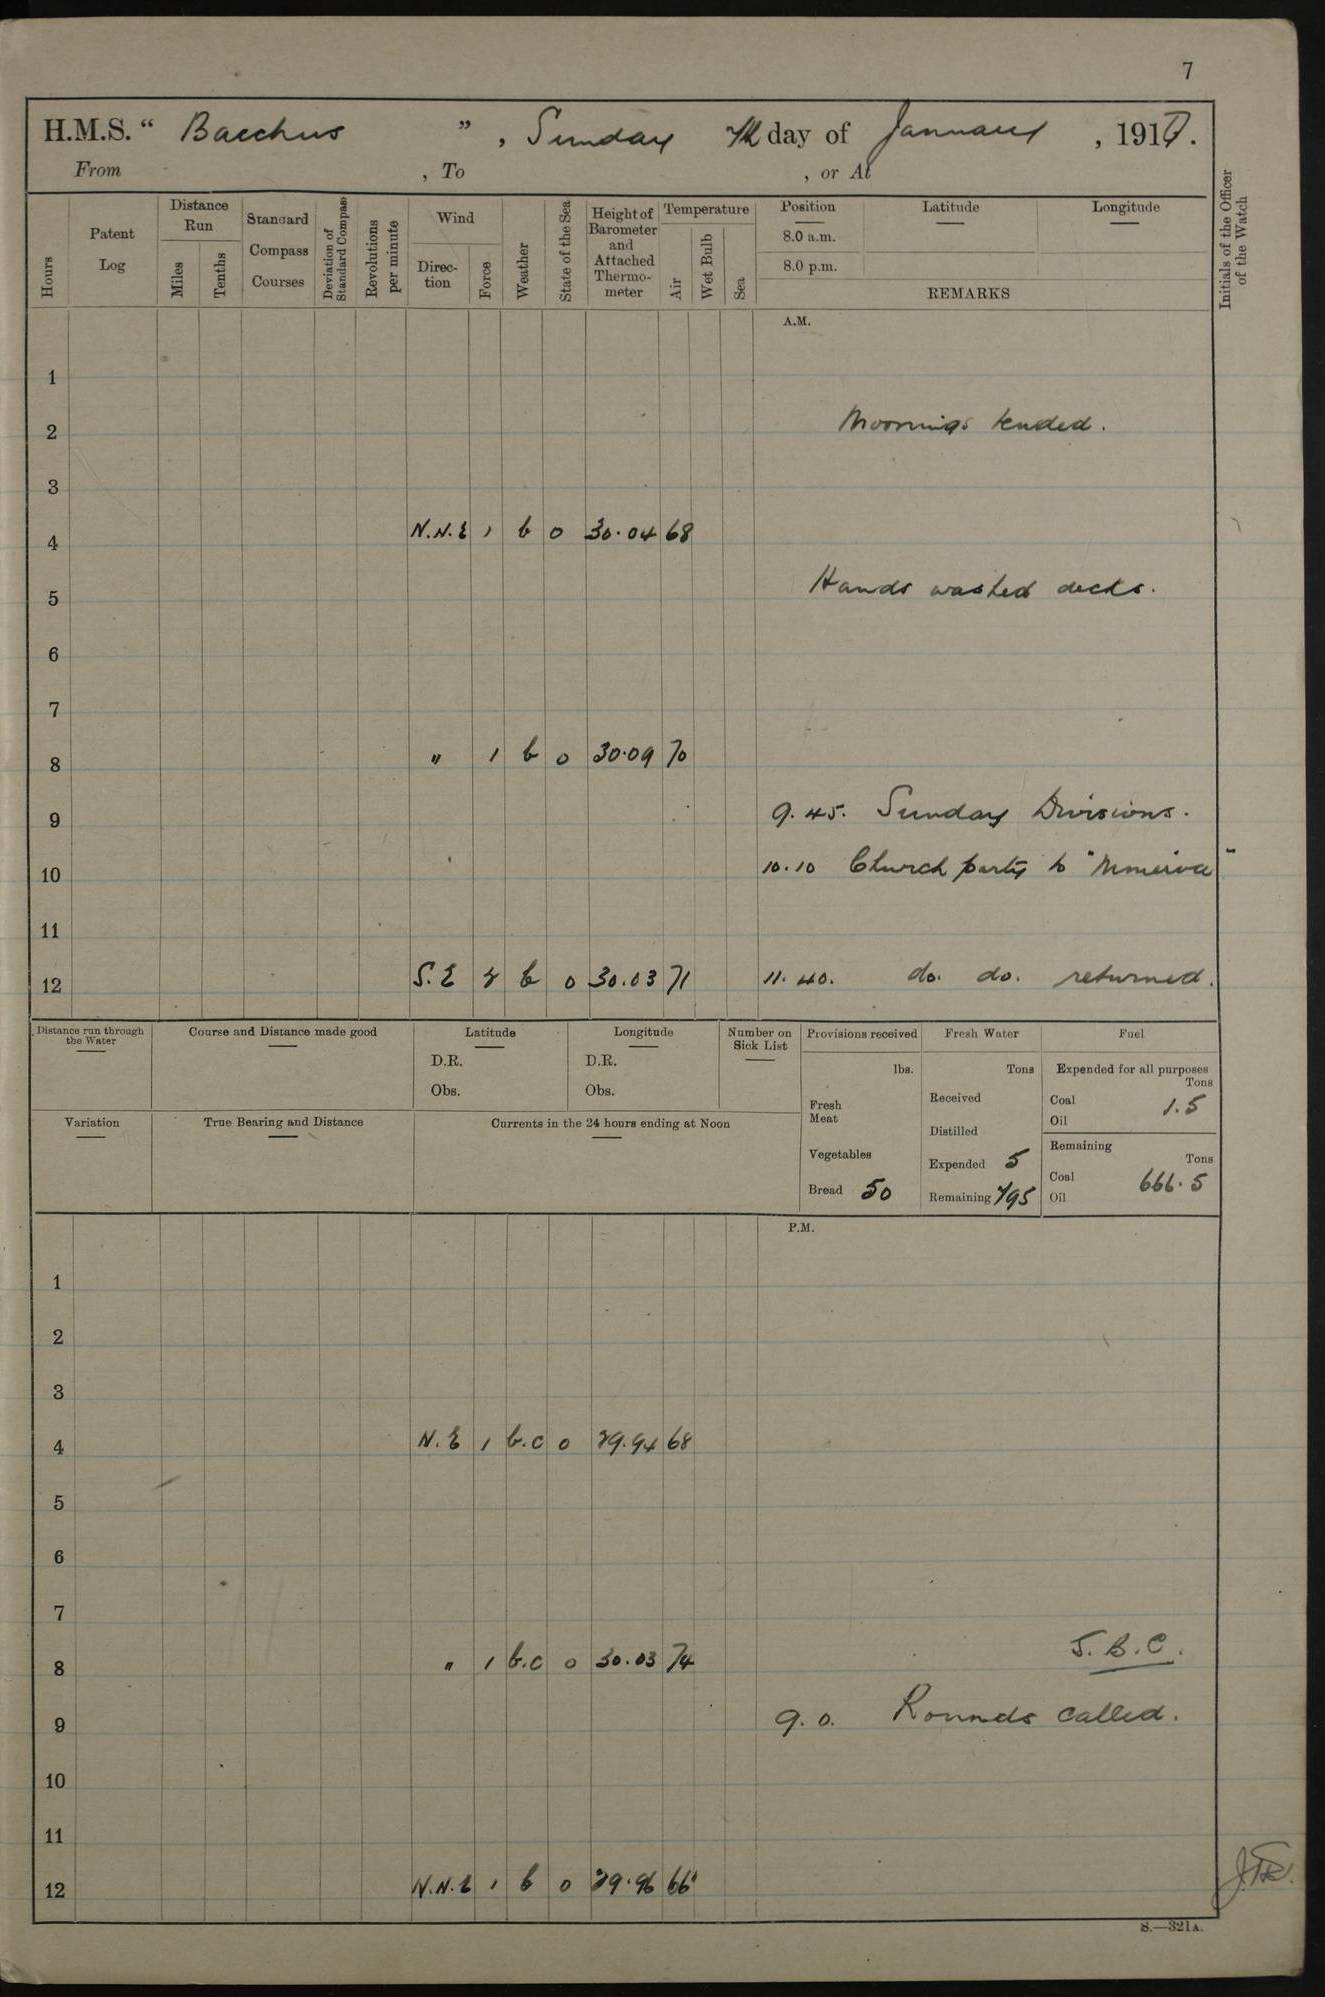 7
H.M.S. “ Bacchus ” , Sunday 7th day of January , 1917.
From , To , or At
Hours
Patent Log
Distance Run
Miles
Tenths
Standard Compass Courses
Deviation of Standard Compass
Revolutions per minute
Wind
Direction
Force
Weather
State of the Sea
Height of Barometer and Attached Thermometer
Temperature
Air
Wet Bulb
Sea
Position Latitude Longitude
8.0 a.m.
8.0 p.m.
REMARKS
Initials of the Officer of the Watch
A.M.
1
2 Moorings tended.
3
4 N.N.E 1 b 0 30.04 68
5 Hands washed decks.
6
7
8 " 1 b 0 30.09 70
9 9.45. Sunday Divisions.
10 10.10 Church party to "Minerva"
11
12 S.E 2 b 0 30.03 71 11.40. do. do. returned.
Distance run through the Water
Course and Distance made good
Latitude
D.R.
Obs.
Longitude
D.R.
Obs.
Number on Sick List
Variation
True Bearing and Distance
Currents in the 24 hours ending at Noon
Provisions received
lbs.
Fresh Meat
Vegetables
Bread 50
Fresh Water
Tons
Received
Distilled
Expended 5
Remaining 795
Fuel
Expended for all purposes
Tons
Coal 1.5
Oil
Remaining
Tons
Coal 666.5
Oil
P.M.
1
2
3
4 N.E 1 b.c 0 29.94 68
5
6
7
8 " 1 b.c 0 30.03 74 J.B.C.
9 9.0. Rounds called.
10
11
12 N.N.E 1 b 0 29.96 66
S.—321A.